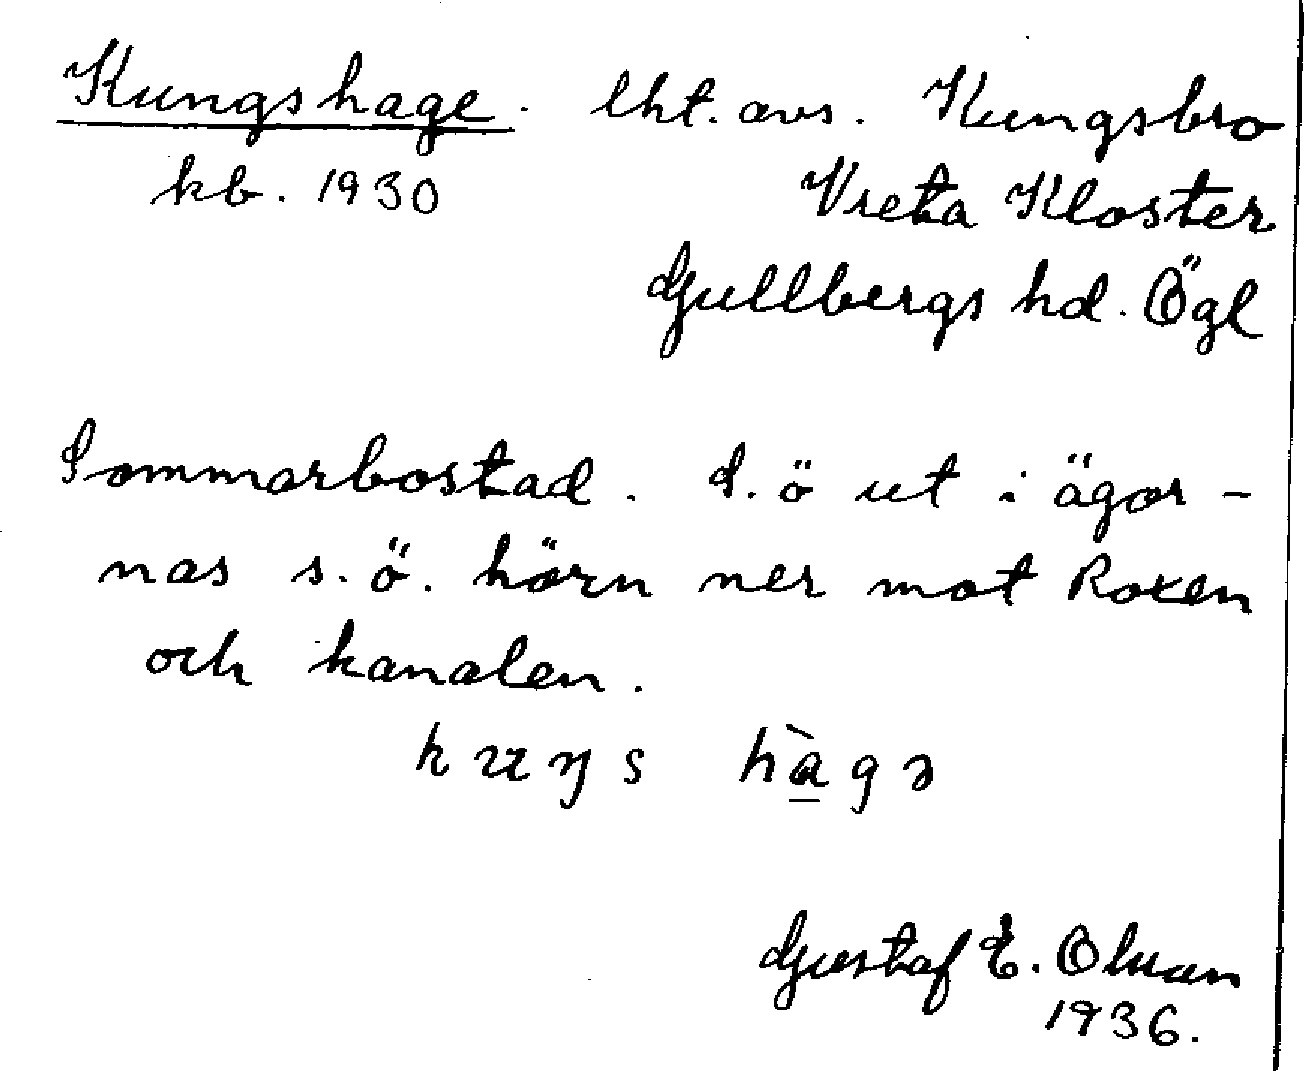 Kungshage. lht. avs. Kungsbro
kb. 1930 Vreta Kloster
Gullbergs hd. Ögl
Sommarbostad. d. ö ut i ägor-
nas s.ö. hörn ner mot Roxen
och kanalen.
kuŋs hàgə
Gustaf E. Olsson
1936.